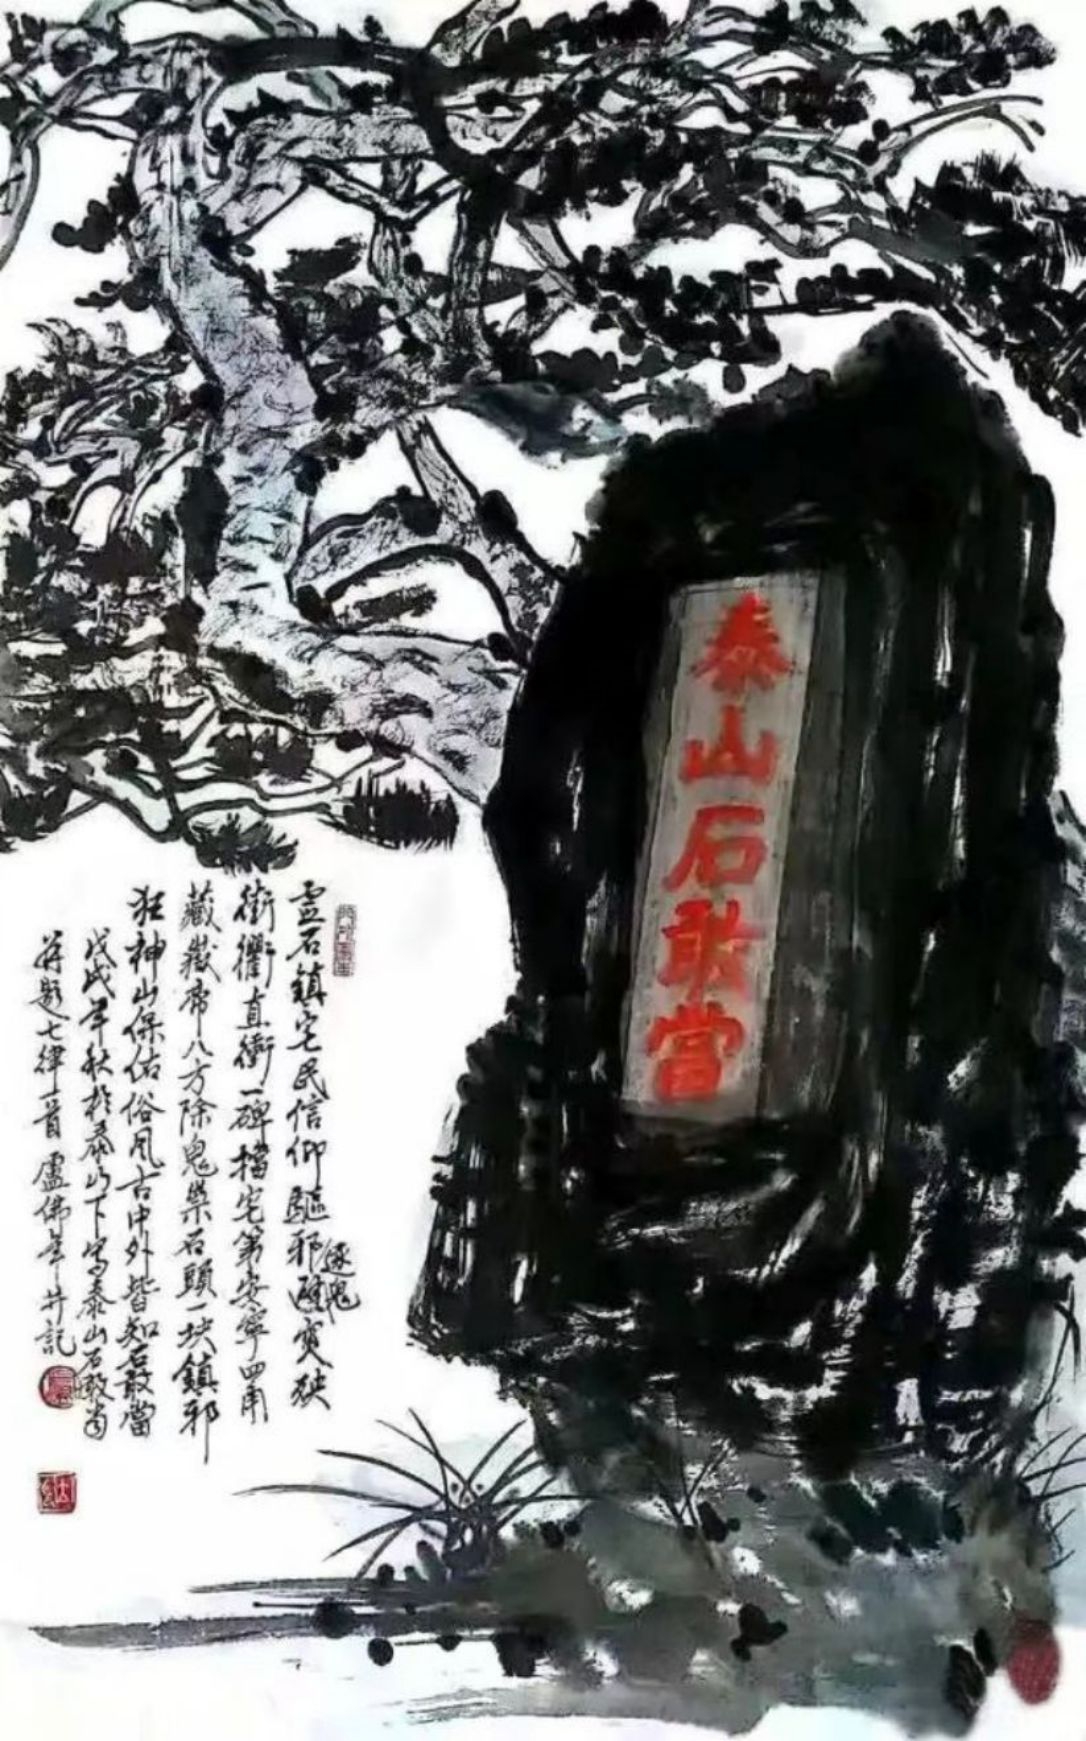 泰山石敢當
霊石鎮宅民信仰驅邪避灾殃
逐鬼
街衢直衝一碑擋宅第安寧四角
藏嶽帝八方除鬼祟石頭一块鎮邪
狂神山保佑俗風古中外皆知石敢當
戊戌年秋於泰山下寫泰山石敢當
題七律一首盧佛年并記